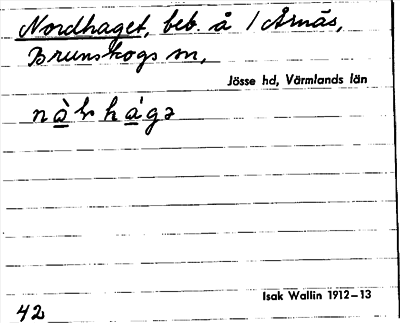 Nordhaget, beb. å 1 Årnäs,
Brunskogs sn,
Jösse hd, Värmlands län
Isak Wallin 1912–13
42